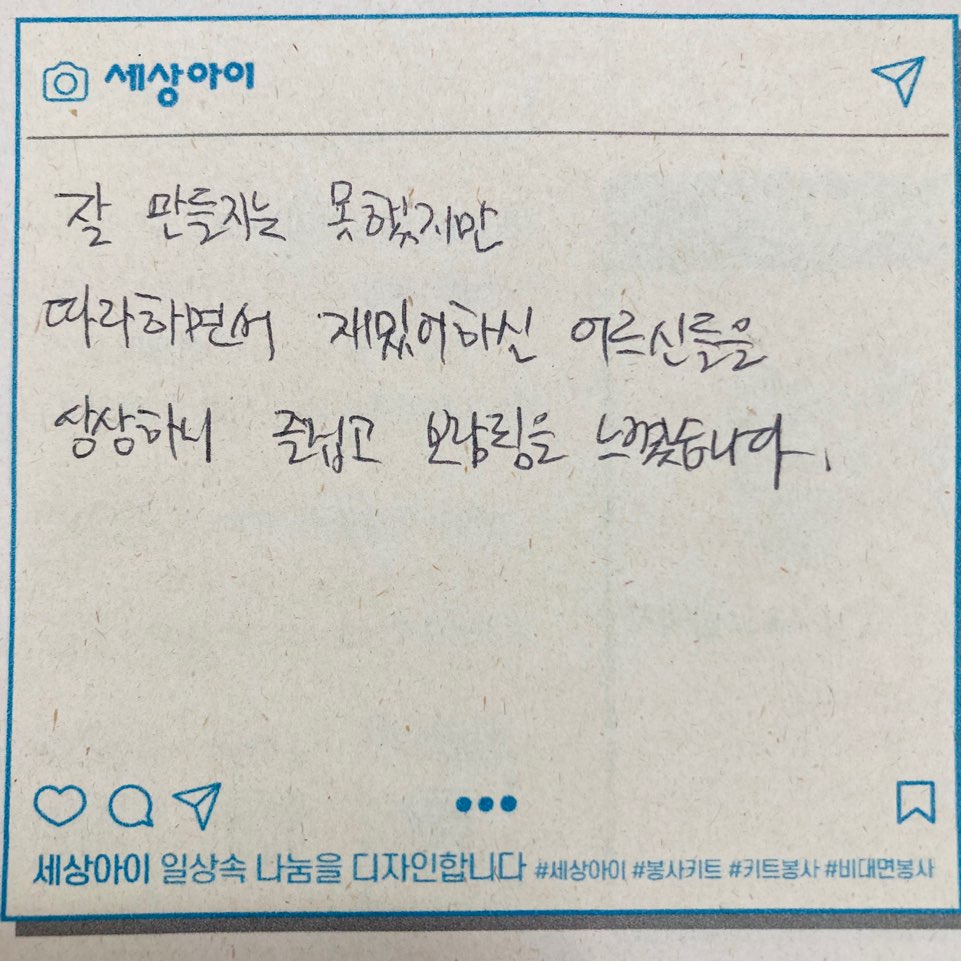 세상아이
잘 만들지는 못했지만
따라하면서 재밌어하실 어르신들을
상상하니 즐겁고 보람링을 느꼈습니다.
세상아이 일상속 나눔을 디자인합니다 #세상아이 #봉사키트 #키트봉사 #비대면봉사